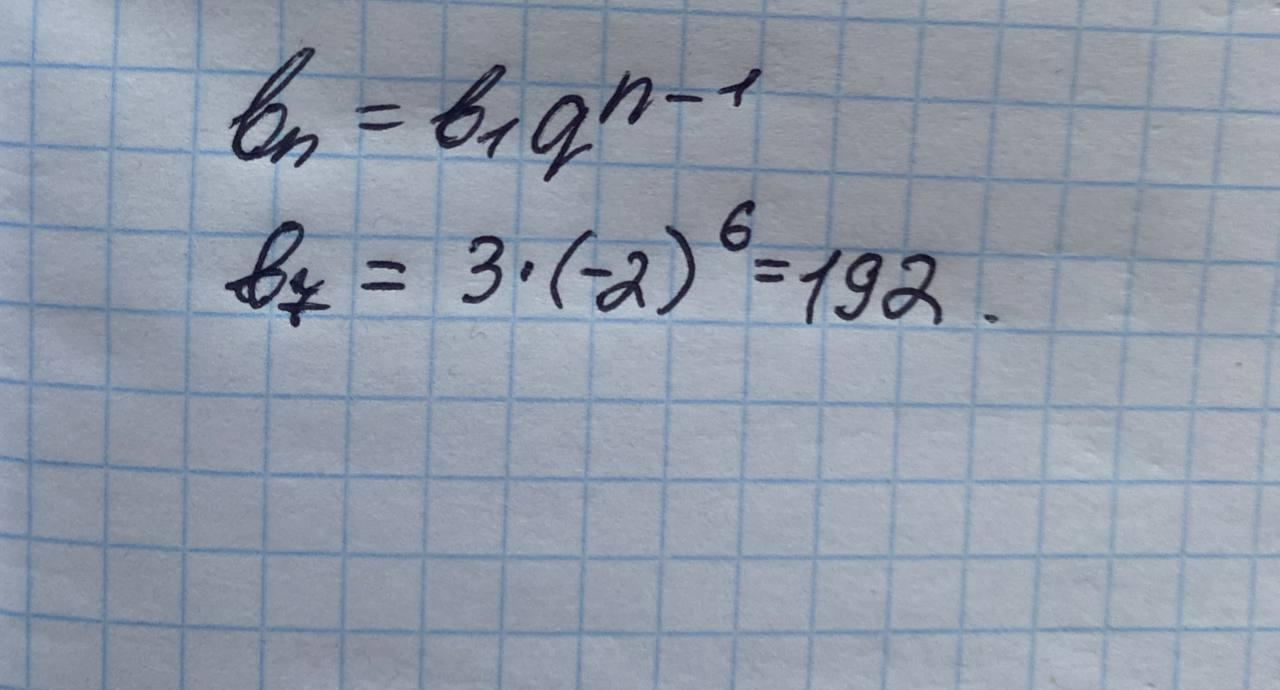 bₙ = b₁qⁿ⁻¹
b₇ = 3·(-2)⁶=192.